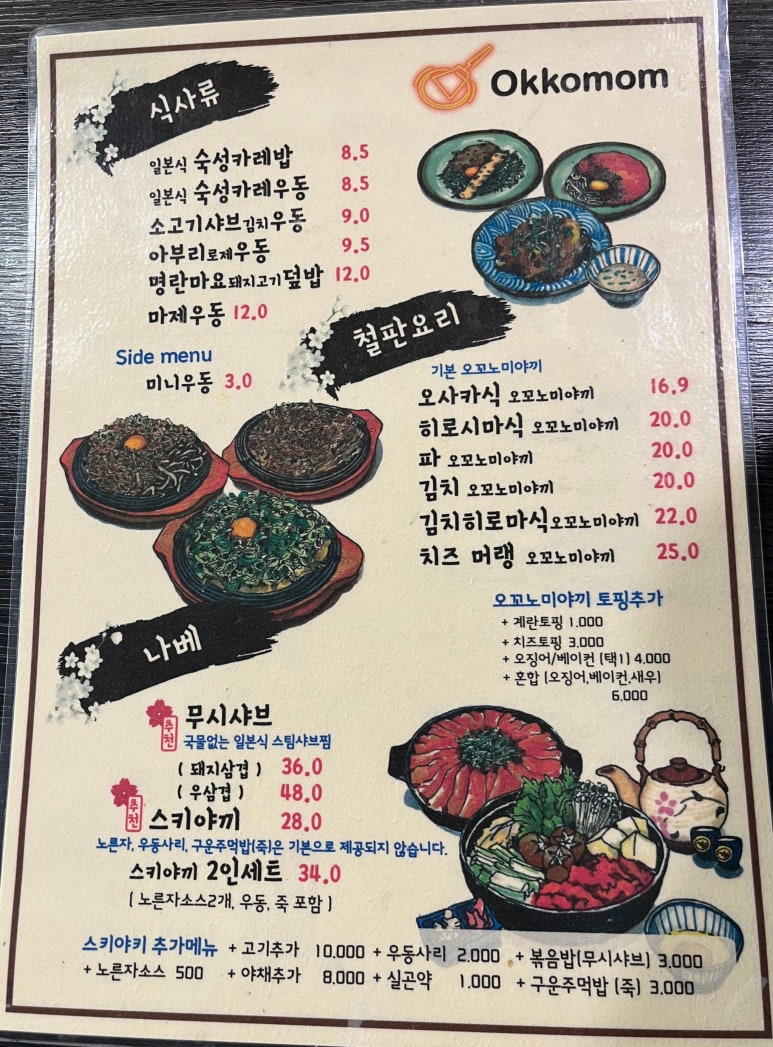 Okkomom
식사류
일본식 숙성카레밥 8.5
일본식 숙성카레우동 8.5
소고기샤브김치우동 9.0
아부리로제우동 9.5
명란마요돼지고기덮밥 12.0
마제우동 12.0
Side menu
미니우동 3.0
철판요리
기본 오꼬노미야끼
오사카식 오꼬노미야끼 16.9
히로시마식 오꼬노미야끼 20.0
파 오꼬노미야끼 20.0
김치 오꼬노미야끼 20.0
김치히로마식오꼬노미야끼 22.0
치즈 머랭 오꼬노미야끼 25.0
오꼬노미야끼 토핑추가
+ 계란토핑 1.000
+ 치즈토핑 3,000
+ 오징어/베이컨 (택1) 4,000
+ 혼합 (오징어,베이컨,새우)
6,000
나베
추천 무시샤브
국물없는 일본식 스팀샤브찜
( 돼지삼겹 ) 36.0
( 우삼겹 ) 48.0
추천 스키야끼 28.0
노른자, 우동사리, 구운주먹밥(죽)은 기본으로 제공되지 않습니다.
스키야끼 2인세트 34.0
( 노른자소스2개, 우동, 죽 포함 )
스키야키 추가메뉴 + 고기추가 10,000 + 우동사리 2,000 + 볶음밥(무시샤브) 3,000
+ 노른자소스 500 + 야채추가 8,000 + 실곤약 1,000 + 구운주먹밥 (죽) 3,000